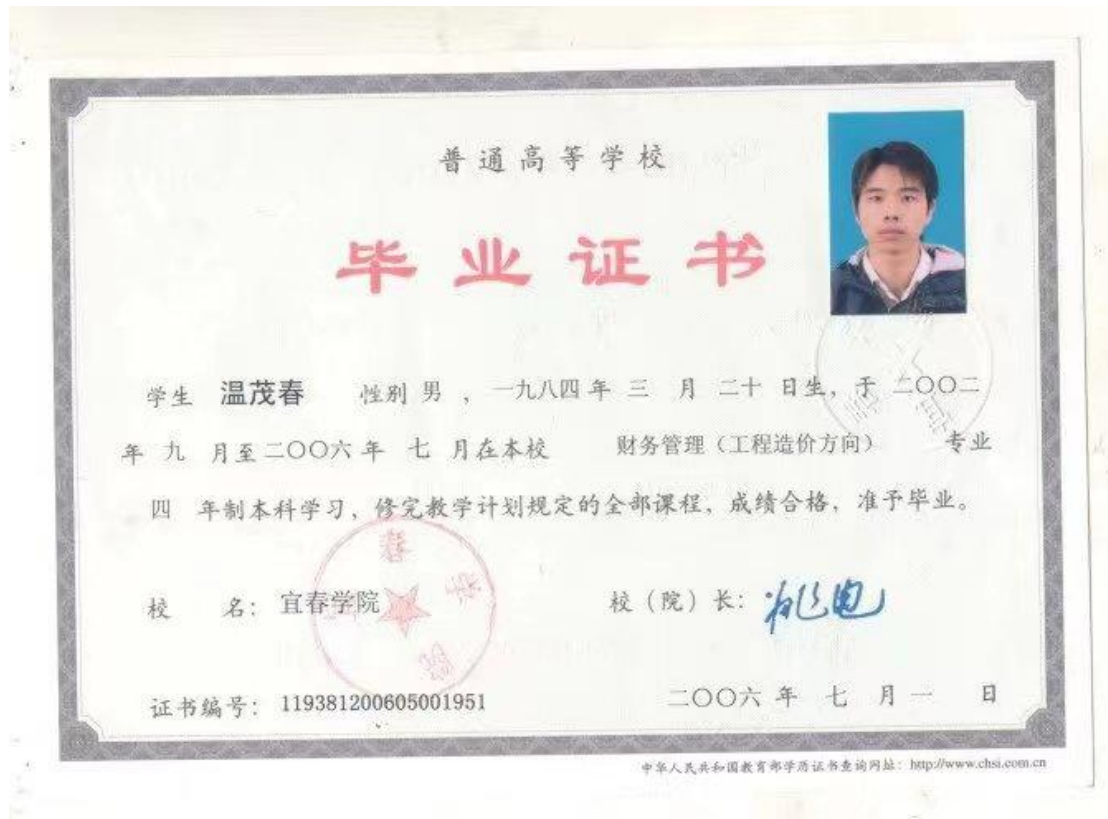 普通高等学校
毕业证书
学生 温茂春 性别 男 ，一九八四 年 三 月 二十 日生，于 二〇〇二
年 九 月至 二〇〇六 年 七 月在本校 财务管理（工程造价方向） 专业
四 年制本科学习，修完教学计划规定的全部课程，成绩合格，准予毕业。
校 名： 宜春学院
校（院）长：
证书编号： 119381200605001951
二〇〇六 年 七 月 一 日
中华人民共和国教育部学历证书查询网址：http://www.chsi.com.cn